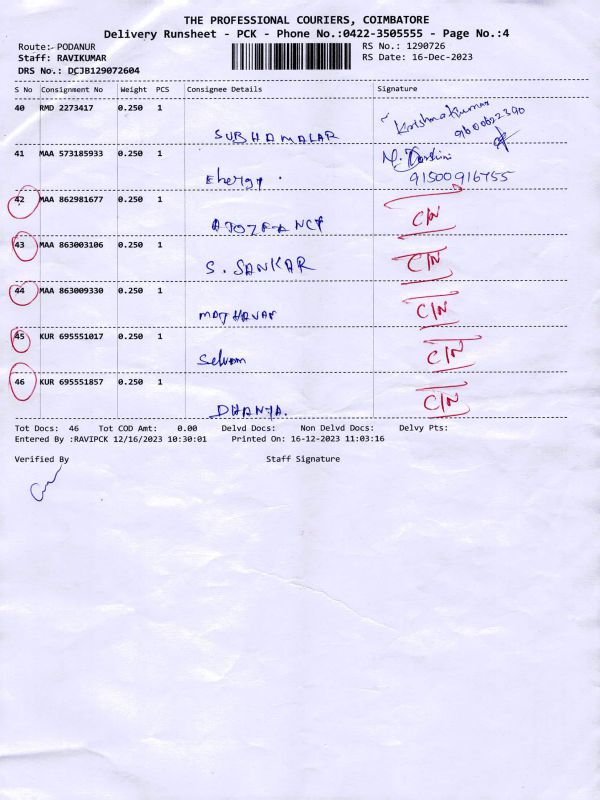 THE PROFESSIONAL COURIERS, COIMBATORE
Delivery Runsheet - PCK - Phone No.:0422-3505555 - Page No.:4
Route:- PODANUR RS No.: 1290726
Staff: RAVIKUMAR RS Date: 16-Dec-2023
DRS No.: DCJB129072604
S No Consignment No Weight PCS Consignee Details Signature
40 RMD 2273417 0.250 1
SUBHAMALAR Krishnakumar
41 MAA 573185933 0.250 1
Ehergy. 91500916755
42 MAA 862981677 0.250 1 C/N
43 MAA 863003106 0.250 1 C/N
S. SANKAR
44 MAA 863009330 0.250 1 C/N
45 KUR 695551017 0.250 1 C/N
Selvam
46 KUR 695551857 0.250 1 C/N
DHANYA.
Tot Docs: 46 Tot COD Amt: 0.00 Delvd Docs: Non Delvd Docs: Delvy Pts:
Entered By :RAVIPCK 12/16/2023 10:30:01 Printed On: 16-12-2023 11:03:16
Verified By Staff Signature